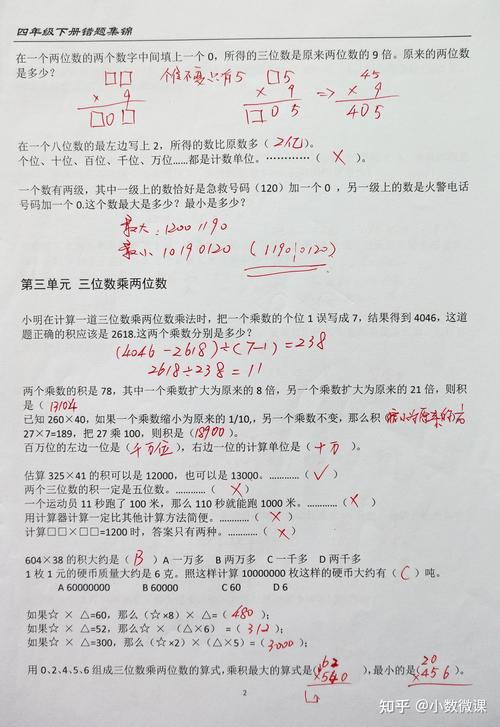 四年级下册错题集锦
在一个两位数的两个数字中间填上一个0，所得的三位数是原来两位数的9倍。原来的两位数
是多少？
个位不变只有5
□□ □5 45
× 9 × 9 ⇒ × 9
□0□ □05 405
在一个八位数的最左边写上2，所得的数比原数多（2亿）。
个位、十位、百位、千位、万位……都是计数单位。…………（ × ）。
一个数有两级，其中一级上的数恰好是急救号码（120）加一个0 ，另一级上的数是火警电话
号码加一个0.这个数最大是多少？最小是多少？
最大：12001190
最小 10190120 （11900120）
第三单元 三位数乘两位数
小明在计算一道三位数乘两位数乘法时，把一个乘数的个位1误写成7，结果得到4046，这道
题正确的积应该是2618.这两个乘数分别是多少？
(4046－2618)÷(7－1)＝238
2618÷238＝11
两个乘数的积是78，其中一个乘数扩大为原来的8倍，另一个乘数扩大为原来的21倍，则积
是（ 13104
已知260×40，如果一个乘数缩小为原来的1/10,，另一个乘数不变，那么积 缩小为原来的
27×7=189，把27乘100，则积是（18900）。
百万位的左边一位是（千万位），右边一位的计算单位是（十万）。
估算325×41的积可以是12000，也可以是13000。…………（√）
两个三位数的积一定是五位数。…………（ × ）
一个运动员11秒跑了100米，那么110秒就能跑1000米。…………（×）
用计算器计算一定比其他计算方法简便。…………（ × ）
计算□□×□□=1200时，答案只有两种。…………（ × ）
604×38的积大约是（ B ）A 一万多 B 两万多 C 一千多 D 两千多
1枚1元的硬币质量大约是6克。照这样计算10000000枚这样的硬币大约有（ C ）吨。
A 60000000 B 60000 C 60 D 6
如果☆ × △=60，那么（☆×8）× △=（ 480 ）；
如果☆ × △=52，那么☆ × （△×6） =（ 312 ）；
如果☆ × △=300，那么（☆×2）×（△×5）=（3000）；
用0、2、4、5、6组成三位数乘两位数的算式，乘积最大的算式是（ 62 ×540 ），最小的是（ 20 ×456 ）。
2
知乎 @小数微课